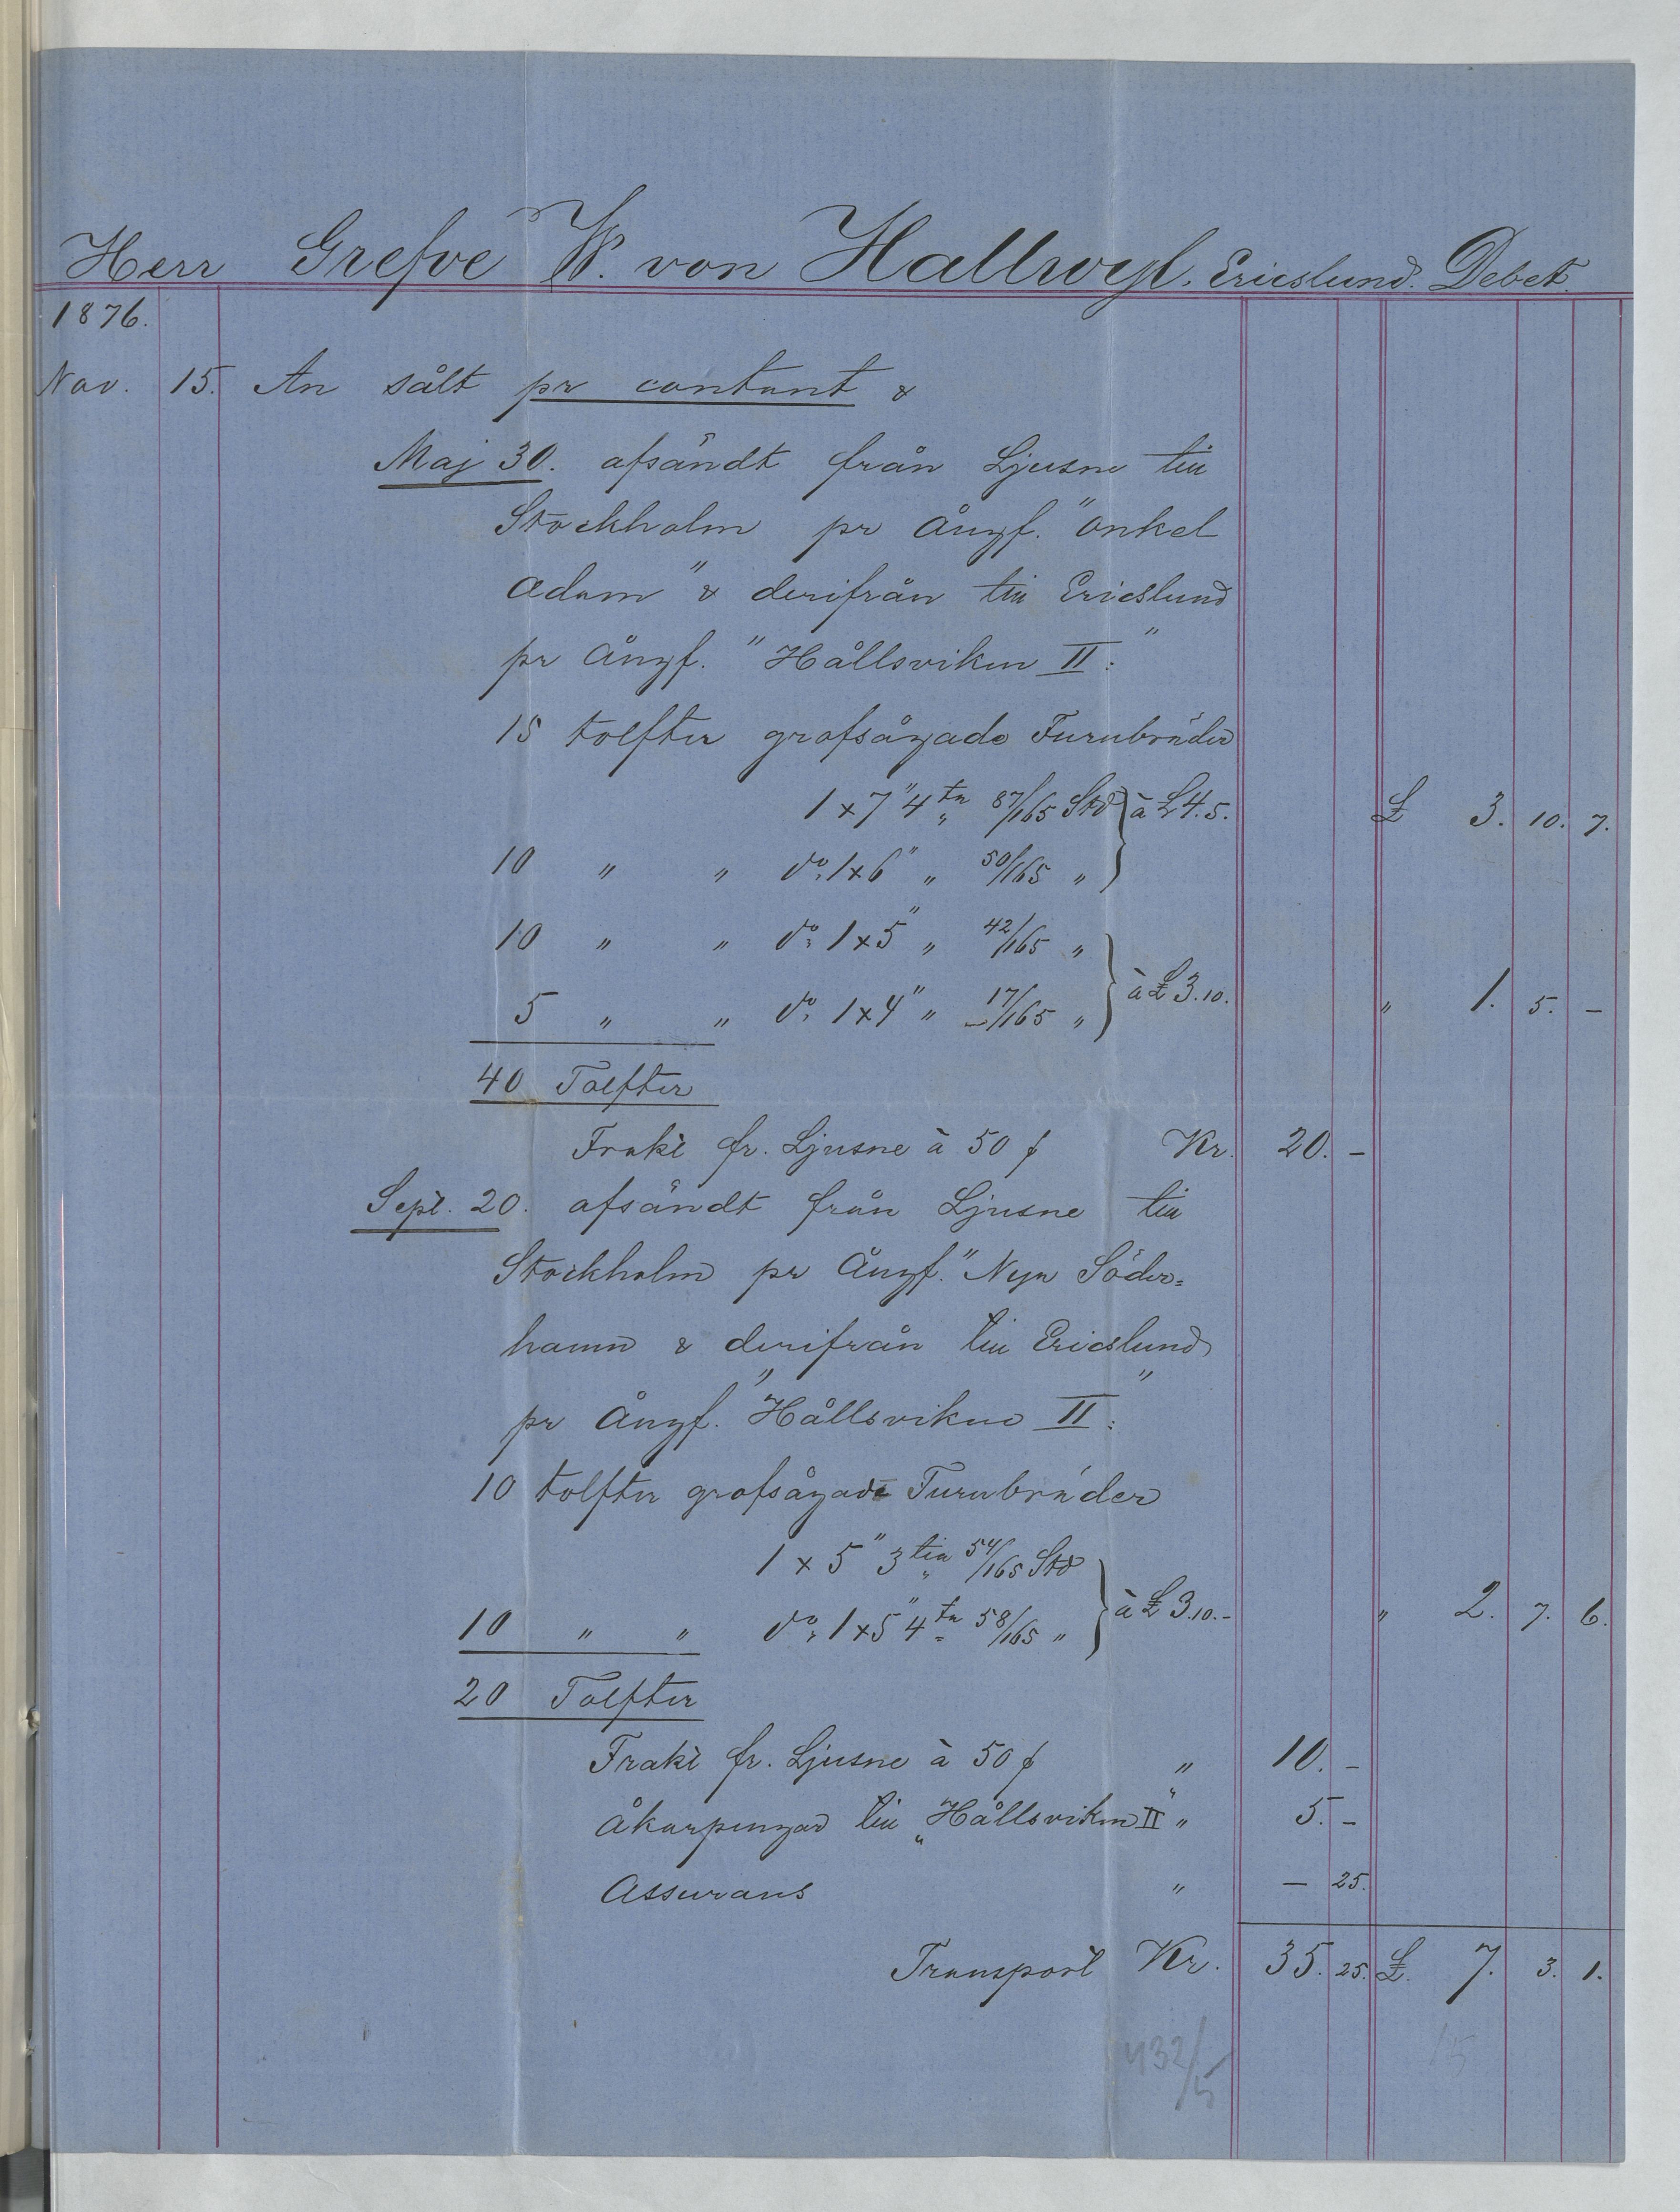 Herr Grefve W. von Hallwyl. Ericslund. Debet.
1876.
Nov. 15. An sålt pr contant &
Maj 30. afsändt från Ljusne till
Stockholm pr Ångf. "Onkel
Adam" & derifrån till Ericslund
pr Ångf. "Hållsviken II:"
15 tolfter grofsågade Furubräder
1 x 7" 4tu " 87/165 Std } à £ 4.5. £ 3. 10. 7.
10 " " do: 1 x 6" " 50/165 "
10 " " do: 1 x 5" " 42/165 "
5 " " do: 1 x 4" " 17/165 " } à £ 3.10. " 1. 5. –
40 Tolfter
Frakt fr. Ljusne à 50 f Kr. 20. –
Sept. 20. afsändt från Ljusne till
Stockholm pr Ångf. "Nya Söder=
hamn & derifrån till Ericslund
pr Ångf. "Hållsviken II:"
10 tolfter grofsågade Furubräder
1 x 5" 3tu " 54/165 Std
10 " " do: 1 x 5" 4tu " 58/165 " } à £ 3.10.– " 2. 7. 6.
20 Tolfter
Frakt fr. Ljusne à 50 f " 10. –
Åkarpengar till "Hållsviken II" " 5. –
Assurans " – 25.
Transport Kr. 35. 25. £. 7. 3. 1.
432/5 15